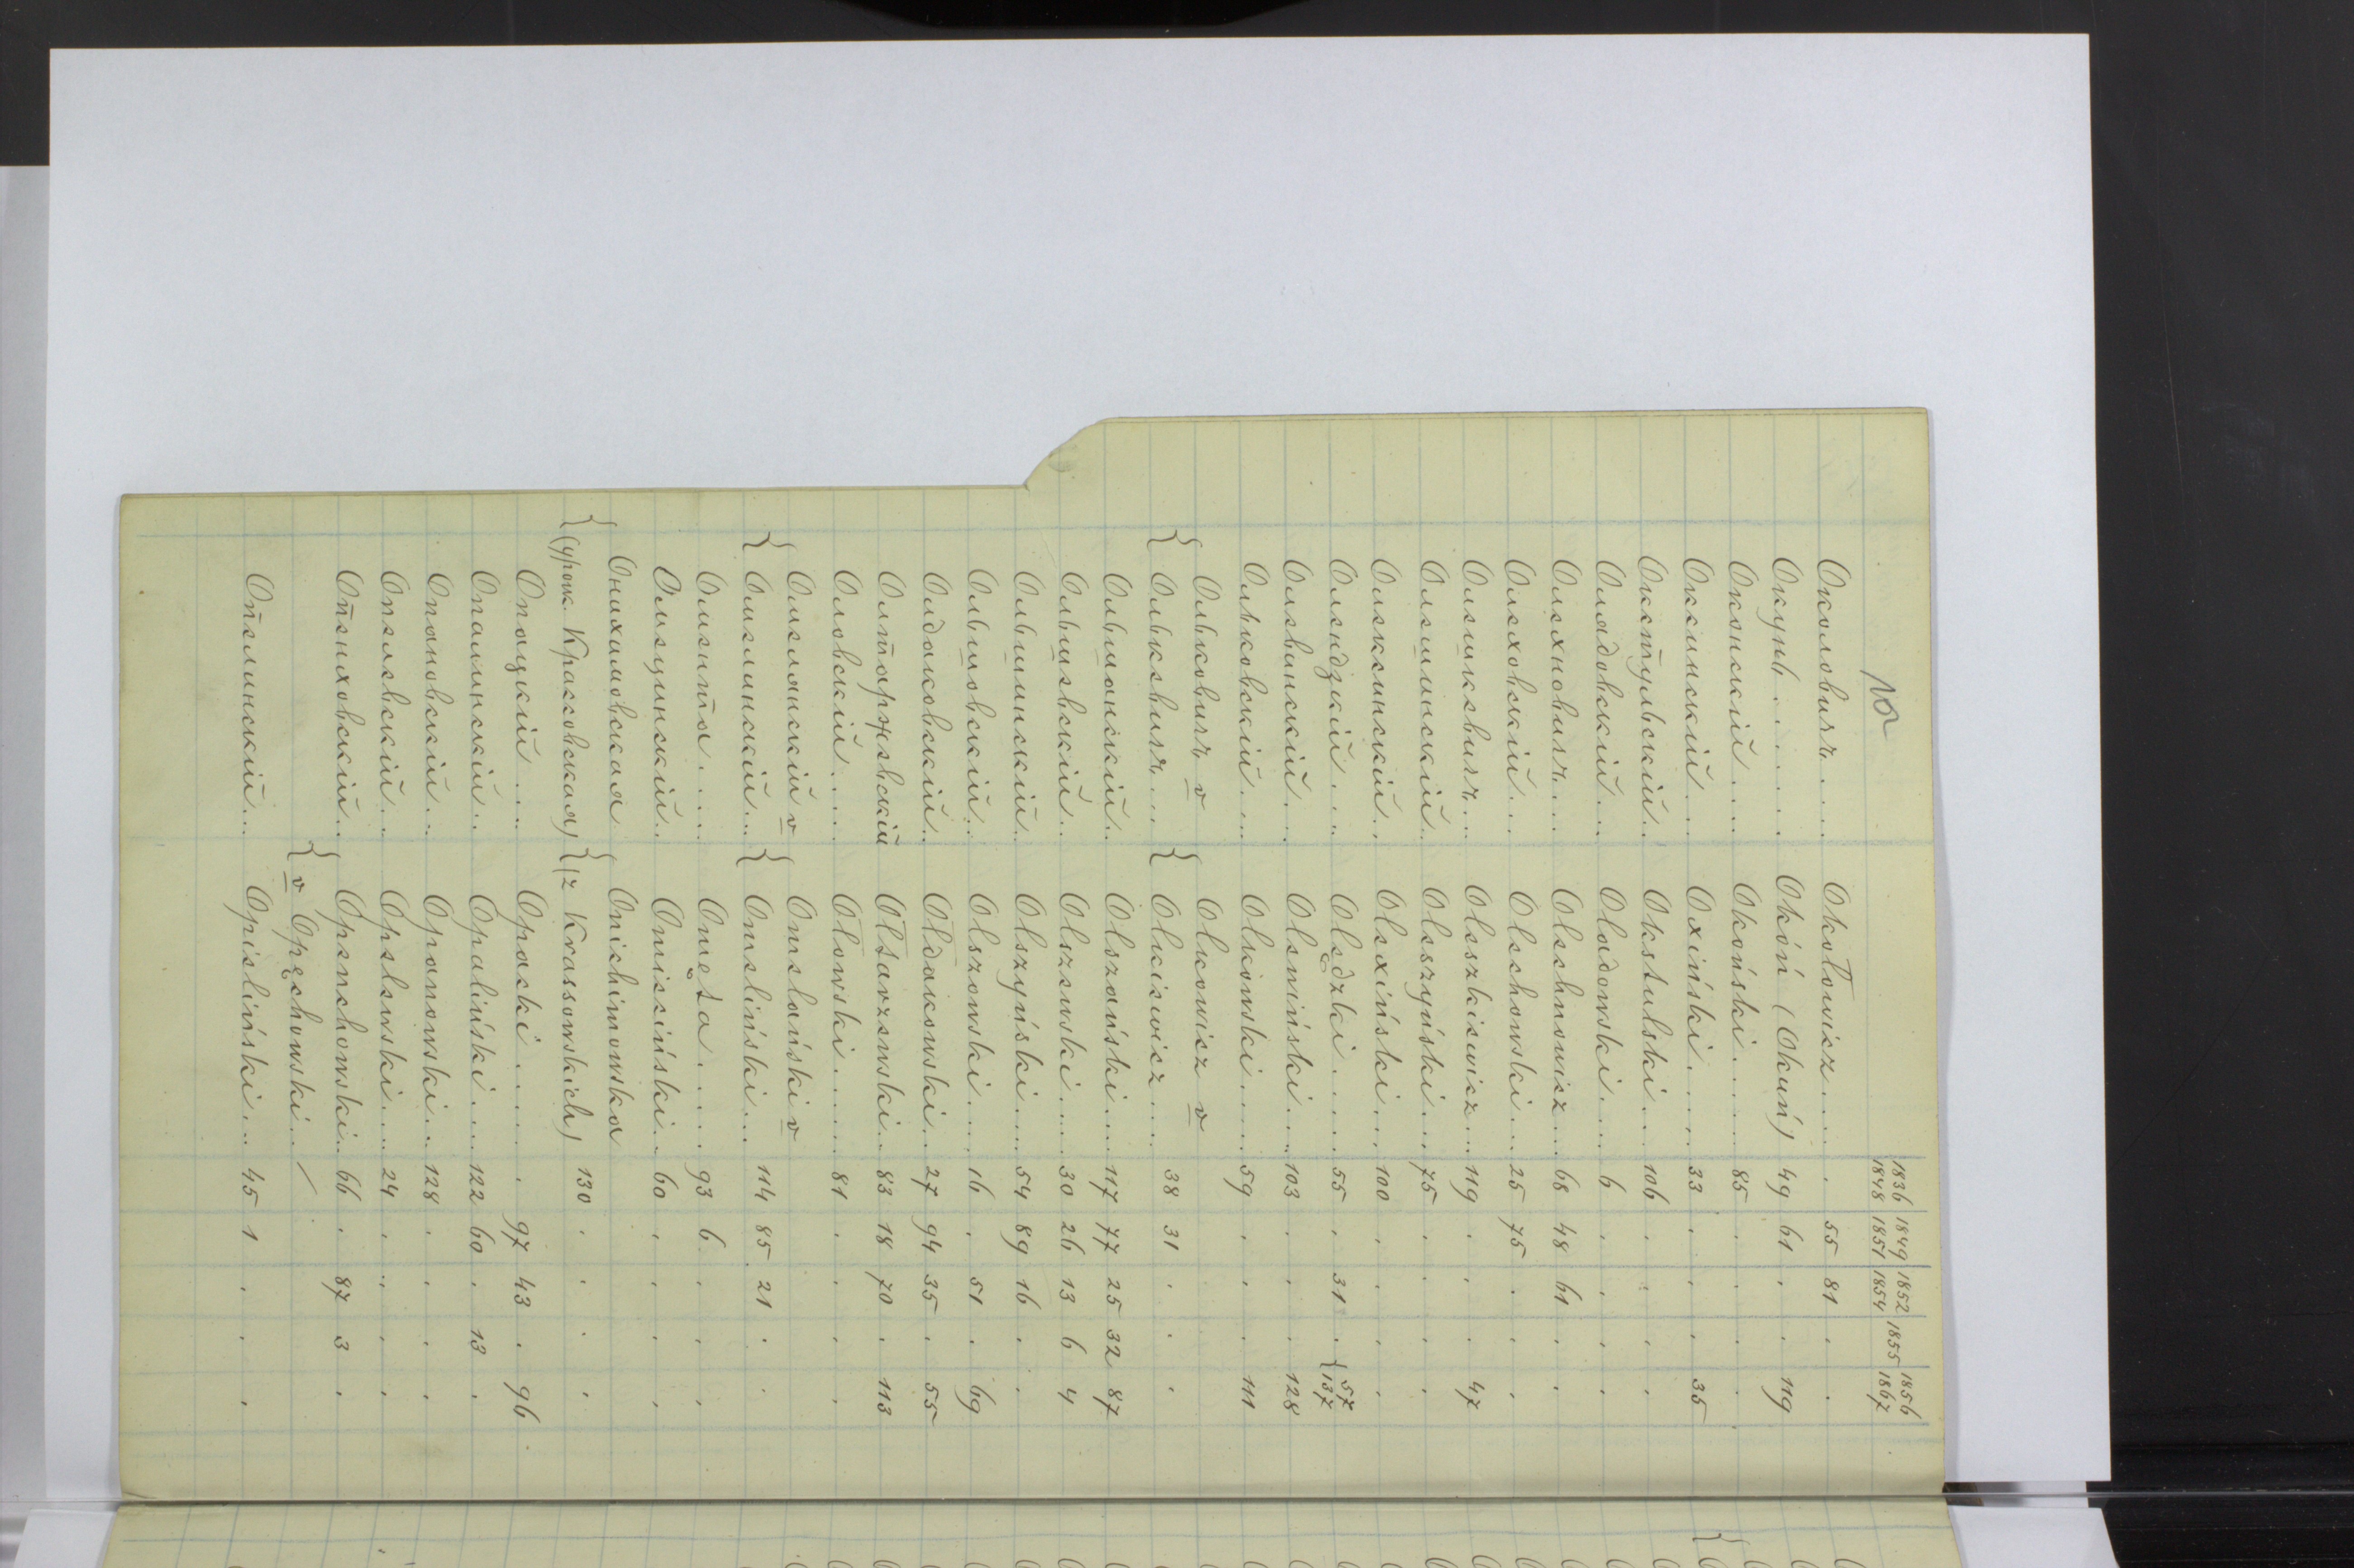 1836 1849 1852 1855 1856
1848 1851 1854 1867
Околовичъ..... Okołowicz..... . 55 81 . .
Окунь....... Okóń (Okuń) 49 61 . . 119
Оконскій..... Okoński..... 85 . . . .
Оксинскій.... Oxiński..... 33 . . . 35
Окстульскій.. Okstulski... 106 . . . .
Оладовскій... Oladowski.... 6 . . . .
Олехновичъ... Olechnowicz... 68 48 61 . .
Олеховскій... Olechowski... 25 75 . . .
Олешкевичъ... Oleszkiewicz... 119 . . . 47
Олешинскій.. Oleszyński... 75 . . . .
Олексинскій.. Olexiński... 100 . . . .
Олендзкій.... Olędzki..... 55 . 31 . {57 137
Олевинскій... Olewiński... 103 . . . 128
Ольковскій... Olkowski..... 59 . . . 111
Ольковичъ v Olkowicz v
{ Олькевичъ... { Olkiewicz.... 38 31 . . .
Ольшанскій.. Olszański.... 117 77 25 32 87
Ольшевскій.. Olszewski.... 30 26 13 6 4
Ольшинскій.. Olszyński.... 54 89 16 . .
Ольшовскій.. Olszowski.... 16 . 51 . 69
Олдаковскій.. Ołdakowski.. 27 94 35 . 55
Олтаржевскій Ołtarzewski.. 83 18 70 . 113
Оловскій..... Ołowski..... 81 . . . .
Омеланскій v Omelański v
{ Омелинскій... { Omeliński... 114 85 21 . .
Омента..... Omęta..... 93 6 . . .
Омецинскій.. Omieciński.. 60 . . . .
Онихимовская Onichimowska
{(урож. Крассовская) {(z Krassowskich) 130 . . . .
Опацкій.... Opacki...... . 97 43 . 96
Опалинскій.. Opaliński.... 122 60 . 13 .
Опановскій... Opanowski... 128 . . . .
Опелевскій... Opelewski.... 24 . . . .
Опенховскій.. Openchowski.. 66 . 87 3 .
{ v Opęchowski.. /
Опелинскій... Opieliński... 45 1 . . .